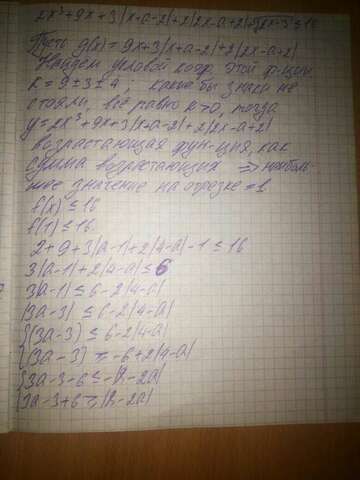 2x³ + 9x + 3|x-a-2| + 2|2x-a+2| ≤ 16
Пусть g(x) = 9x + 3|x-a-2| + 2|2x-a+2|
Найдем угловой коэф. этой ф-ции
k = 9 ± 3 ± 4, какие бы знаки не
стояли, всё равно k > 0, тогда
y = 2x³ + 9x + 3|x-a-2| + 2|2x-a+2|
возрастающая фун-ция, как
сумма возрастающих ⇒ наиболь-
шее значение на отрезке = 1
f(x) ≤ 16
f(1) ≤ 16
2 + 9 + 3|a-1| + 2|4-a| - 1 ≤ 16
3|a-1| + 2|4-a| ≤ 6
3|a-1| ≤ 6-2|4-a|
|3a-3| ≤ 6-2|4-a|
{(3a-3) ≤ 6-2|4-a|
{(3a-3) ≥ -6+2|4-a|
{3a-3-6 ≤ -|8-2a|
{3a-3+6 ≥ |8-2a|